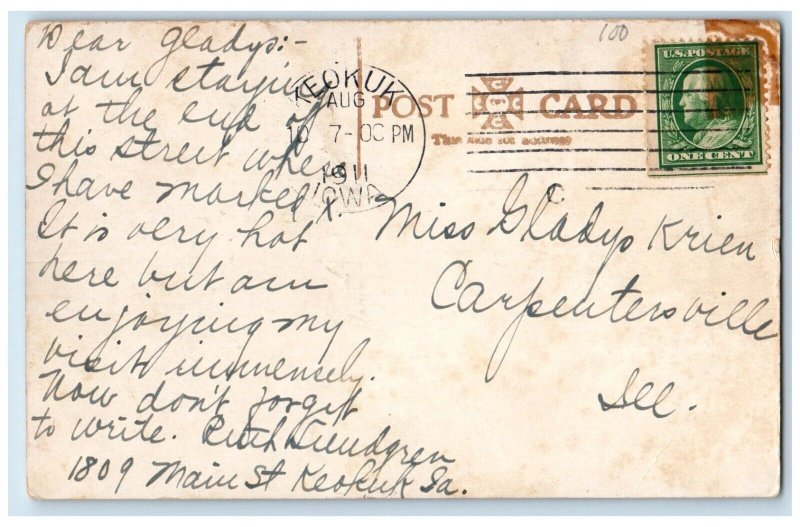 Dear Gladys:-
I am staying
at the end of
this street where
I have marked X.
It is very hot
here but am
enjoying my
visit immensely.
Now don't forget
to write. Ruth Lundgren
1809 Main St Keokuk Ia.
KEOKUK
AUG
10 7-00 PM
1911
IOWA
POST CARD
This side for address
100
U.S. POSTAGE
ONE CENT
Miss Gladys Krien
Carpentersville
Ill.